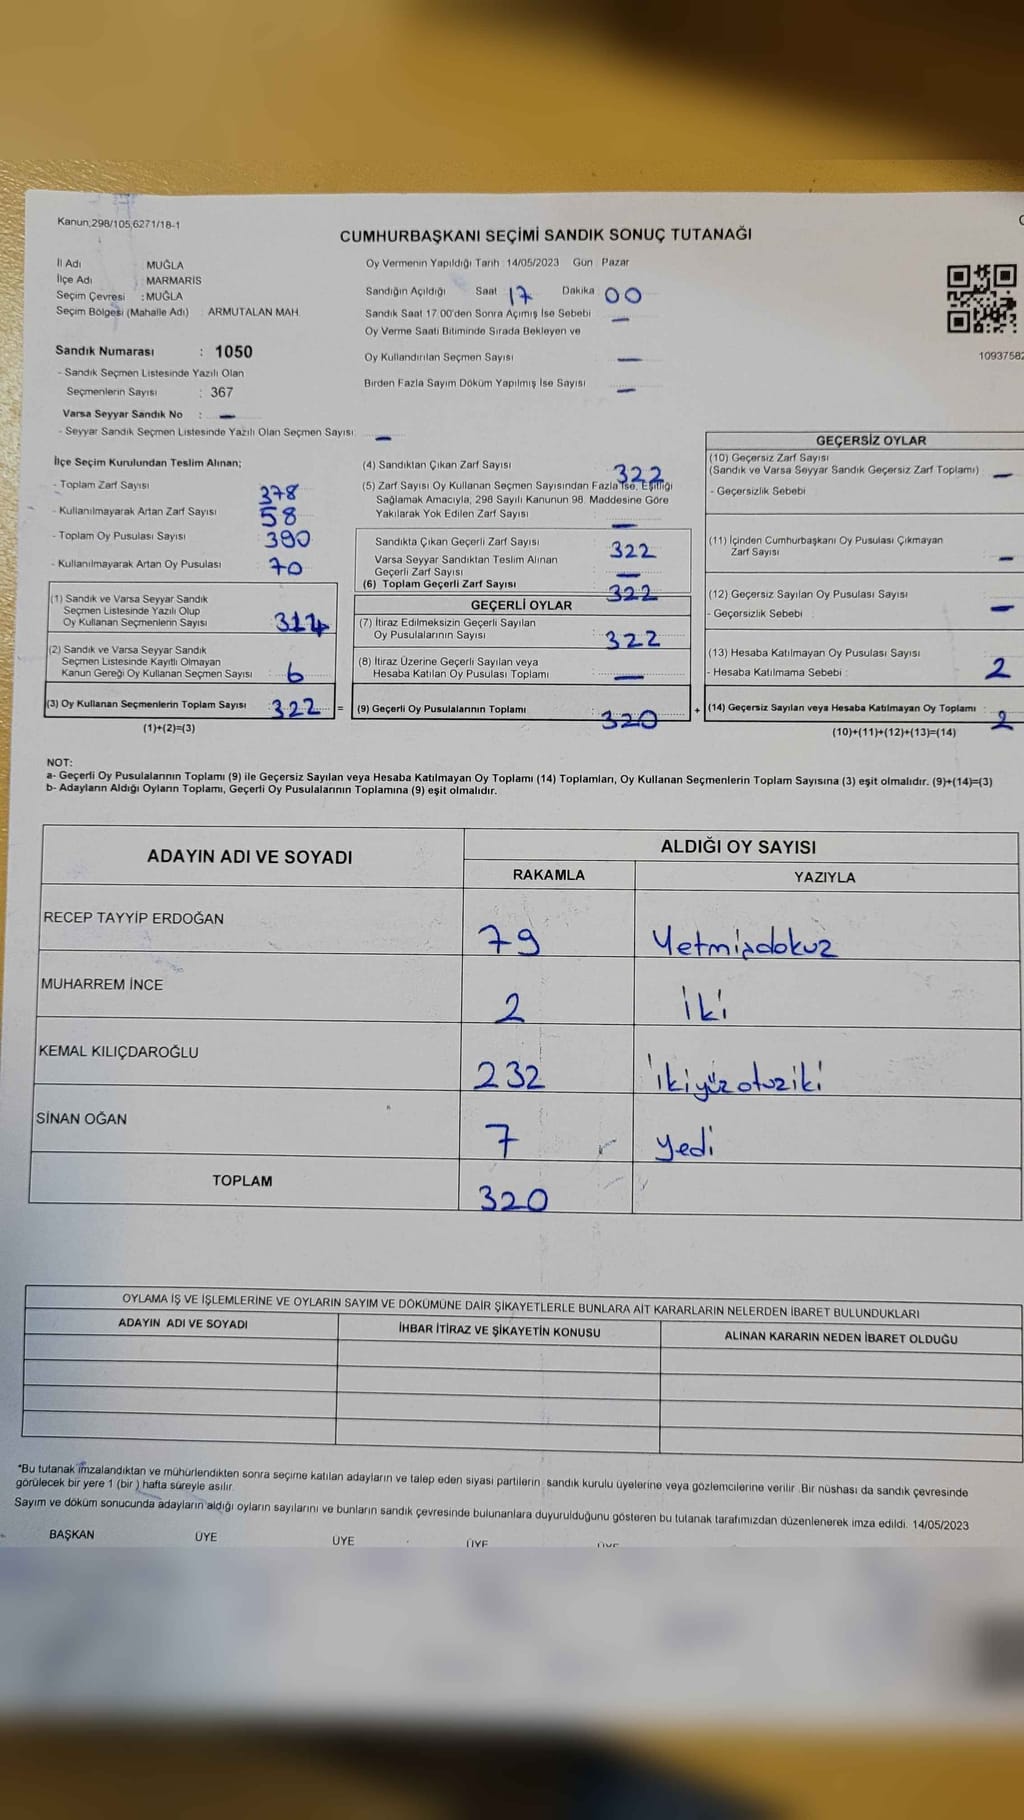 Kanun;298/105,6271/18-1
CUMHURBAŞKANI SEÇİMİ SANDIK SONUÇ TUTANAĞI
İl Adı : MUĞLA
İlçe Adı : MARMARİS
Seçim Çevresi : MUĞLA
Seçim Bölgesi (Mahalle Adı) : ARMUTALAN MAH.
Sandık Numarası : 1050
- Sandık Seçmen Listesinde Yazılı Olan
Seçmenlerin Sayısı : 367
Varsa Seyyar Sandık No : —
- Seyyar Sandık Seçmen Listesinde Yazılı Olan Seçmen Sayısı: —
Oy Vermenin Yapıldığı Tarih : 14/05/2023 Gün : Pazar
Sandığın Açıldığı Saat 17 Dakika 00
Sandık Saat 17.00'den Sonra Açımış İse Sebebi —
Oy Verme Saati Bitiminde Sırada Bekleyen ve
Oy Kullandırılan Seçmen Sayısı —
Birden Fazla Sayım Döküm Yapılmış İse Sayısı —
10937582
İlçe Seçim Kurulundan Teslim Alınan;
- Toplam Zarf Sayısı 378
- Kullanılmayarak Artan Zarf Sayısı 58
- Toplam Oy Pusulası Sayısı 390
- Kullanılmayarak Artan Oy Pusulası 70
(1) Sandık ve Varsa Seyyar Sandık
Seçmen Listesinde Yazılı Olup
Oy Kullanan Seçmenlerin Sayısı
(2) Sandık ve Varsa Seyyar Sandık
Seçmen Listesinde Kayıtlı Olmayan
Kanun Gereği Oy Kullanan Seçmen Sayısı 6
(3) Oy Kullanan Seçmenlerin Toplam Sayısı 322 =
(1)+(2)=(3)
(4) Sandıktan Çıkan Zarf Sayısı 322
(5) Zarf Sayısı Oy Kullanan Seçmen Sayısından Fazla İse, Eşitliği
Sağlamak Amacıyla, 298 Sayılı Kanunun 98. Maddesine Göre
Yakılarak Yok Edilen Zarf Sayısı —
Sandıkta Çıkan Geçerli Zarf Sayısı 322
Varsa Seyyar Sandıktan Teslim Alınan
Geçerli Zarf Sayısı —
(6) Toplam Geçerli Zarf Sayısı 322
GEÇERLİ OYLAR
(7) İtiraz Edilmeksizin Geçerli Sayılan
Oy Pusulalarının Sayısı : 322
(8) İtiraz Üzerine Geçerli Sayılan veya
Hesaba Katılan Oy Pusulası Toplamı —
(9) Geçerli Oy Pusulalarının Toplamı 320 +
GEÇERSİZ OYLAR
(10) Geçersiz Zarf Sayısı
(Sandık ve Varsa Seyyar Sandık Geçersiz Zarf Toplamı) —
- Geçersizlik Sebebi :
(11) İçinden Cumhurbaşkanı Oy Pusulası Çıkmayan
Zarf Sayısı —
(12) Geçersiz Sayılan Oy Pusulası Sayısı
- Geçersizlik Sebebi : —
(13) Hesaba Katılmayan Oy Pusulası Sayısı
- Hesaba Katılmama Sebebi : 2
(14) Geçersiz Sayılan veya Hesaba Katılmayan Oy Toplamı : 2
(10)+(11)+(12)+(13)=(14)
NOT:
a- Geçerli Oy Pusulalarının Toplamı (9) ile Geçersiz Sayılan veya Hesaba Katılmayan Oy Toplamı (14) Toplamları, Oy Kullanan Seçmenlerin Toplam Sayısına (3) eşit olmalıdır. (9)+(14)=(3)
b- Adayların Aldığı Oyların Toplamı, Geçerli Oy Pusulalarının Toplamına (9) eşit olmalıdır.
ADAYIN ADI VE SOYADI
ALDIĞI OY SAYISI
RAKAMLA YAZIYLA
RECEP TAYYİP ERDOĞAN 79 Yetmişdokuz
MUHARREM İNCE 2 İki
KEMAL KILIÇDAROĞLU 232 İkiyüzotuziki
SİNAN OĞAN 7 yedi
TOPLAM 320
OYLAMA İŞ VE İŞLEMLERİNE VE OYLARIN SAYIM VE DÖKÜMÜNE DAİR ŞİKAYETLERLE BUNLARA AİT KARARLARIN NELERDEN İBARET BULUNDUKLARI
ADAYIN ADI VE SOYADI İHBAR İTİRAZ VE ŞİKAYETİN KONUSU ALINAN KARARIN NEDEN İBARET OLDUĞU
*Bu tutanak imzalandıktan ve mühürlendikten sonra seçime katılan adayların ve talep eden siyasi partilerin sandık kurulu üyelerine veya gözlemcilerine verilir. Bir nüshası da sandık çevresinde
görülecek bir yere 1 (bir ) hafta süreyle asılır.
Sayım ve döküm sonucunda adayların aldığı oyların sayılarını ve bunların sandık çevresinde bulunanlara duyurulduğunu gösteren bu tutanak tarafımızdan düzenlenerek imza edildi. 14/05/2023
BAŞKAN ÜYE ÜYE ÜYE ÜYE